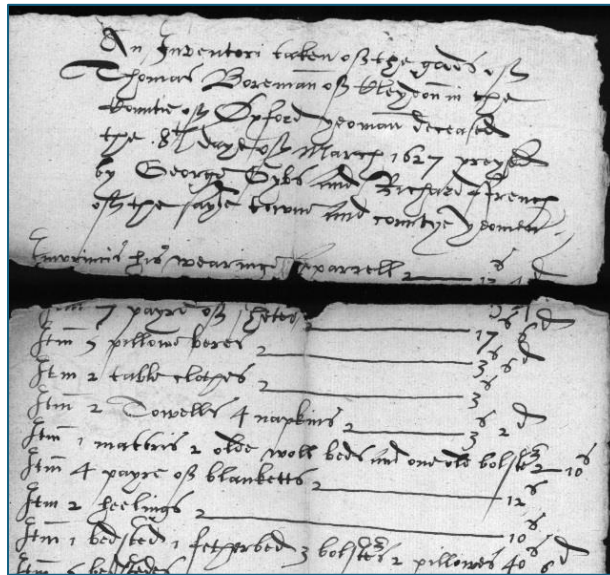 An Inventori taken off the goods off
Thomas Boreman off Cleydon in the
Countie off Oxford yeoman deceased
the 8th daye off March 1627 preysed
by George Gybs and Richard ffrench
off the sayde towne and countye yeomen
Imprimis his wearinge apparrell 12s 4d
Itm 7 payre off shetes 17s 6d
Itm 5 pillowe beres 3s 6d
Itm 2 table clothes 3s
Itm 2 Towells 4 napkins 3s 2d
Itm 1 mattris 2 olde woll beds and one olde bolster 10s
Itm 4 payre off blanketts 12s
Itm 2 heelings 10s
Itm 1 bedsted 1 fetherbed 3 bolsters 2 pillowes 40s 6d
Itm bedstedes